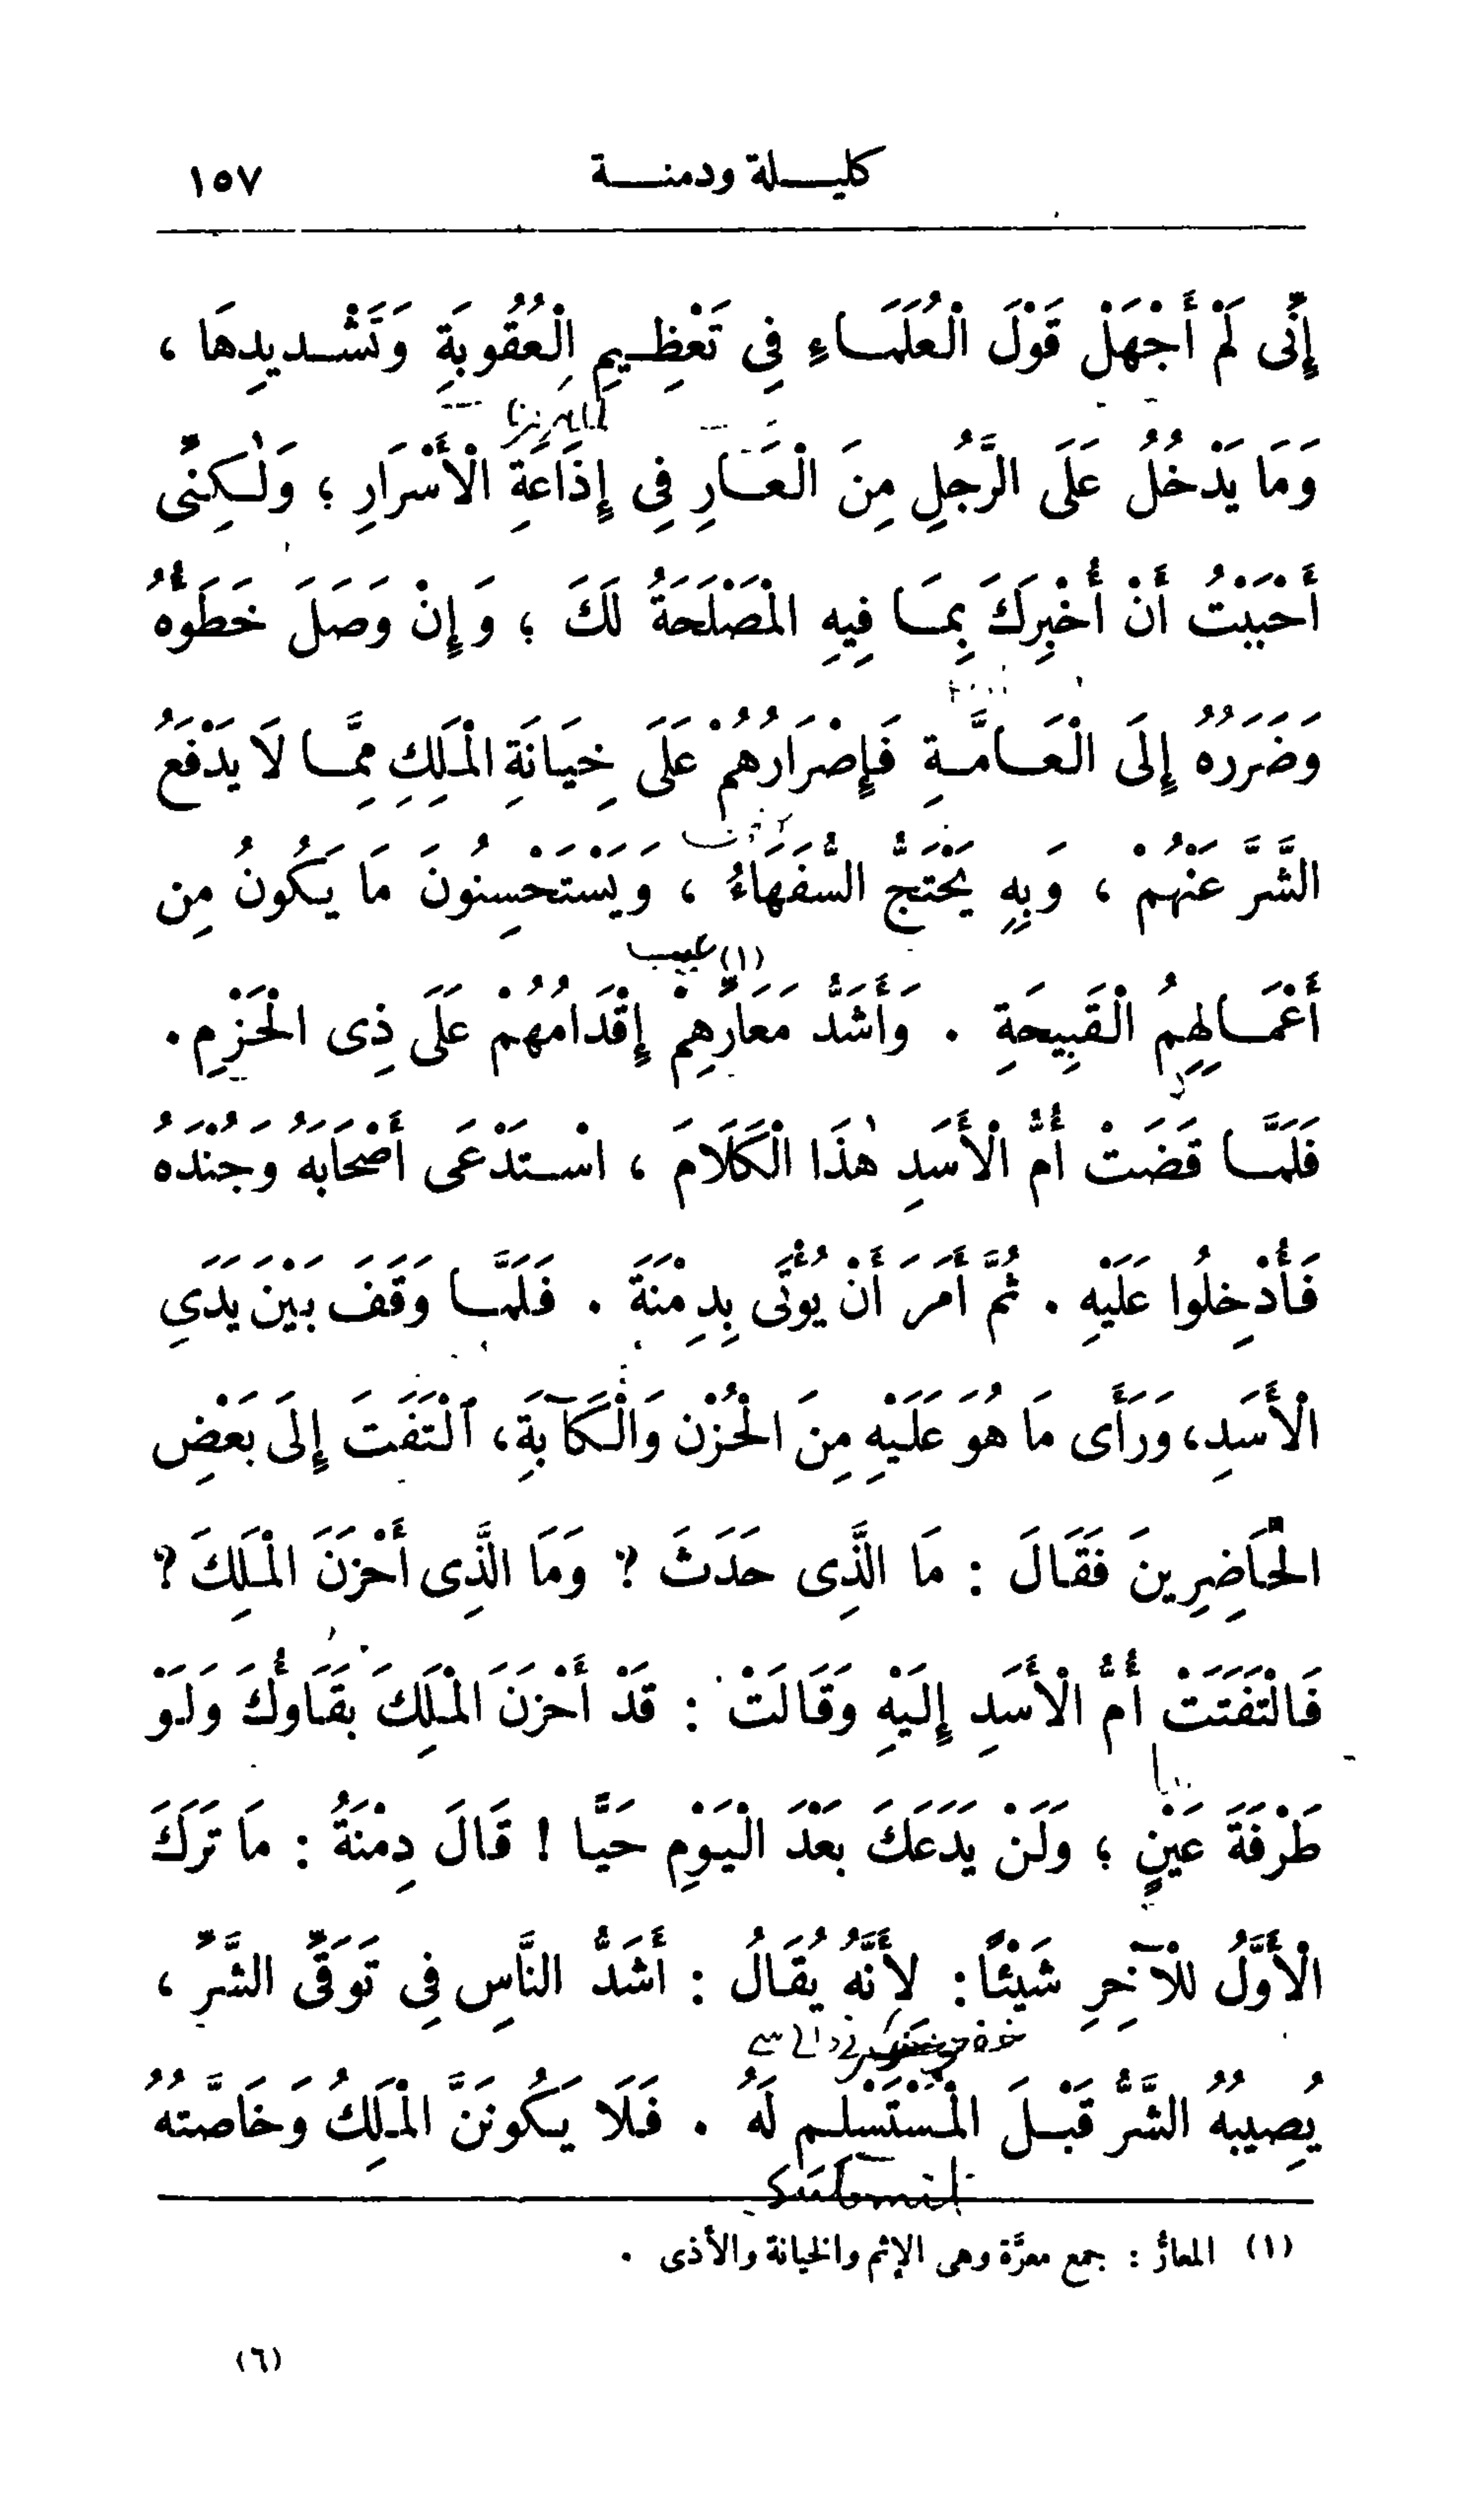 كليلة ودمنة ١٥٧
إِنِّى لَمْ أَجْهَلْ قَوْلَ الْعُلَمَاءِ فِى تَعْظِيمِ الْعُقُوبَةِ وَتَشْدِيدِهَا ،
وَمَا يَدْخُلُ عَلَى الرَّجُلِ مِنَ الْعَارِ فِى إِذَاعَةِ الْأَسْرَارِ ؛ وَلٰكِنِّى
أَحْبَبْتُ أَنْ أُخْبِرَكَ بِمَا فِيهِ الْمَصْلَحَةُ لَكَ ؛ وَإِنْ وَصَلَ خَطَؤُهُ
وَضَرَرُهُ إِلَى الْعَامَّةِ فَإِصْرَارُهُمْ عَلَى خِيَانَةِ الْمَلِكِ مِمَّا لَا يَدْفَعُ
الشَّرَّ عَنْهُمْ ، وَبِهِ يَحْتَجُّ السُّفَهَاءُ ، وَيَسْتَحْسِنُونَ مَا يَكُونُ مِن
عيب (١)
أَعْمَالِهِمُ الْقَبِيحَةِ . وَأَشَدُّ مَعَارِّهِمْ إِقْدَامُهُمْ عَلَى ذِى الْحَزْمِ .
فَلَمَّا قَضَتْ أُمُّ الْأَسَدِ هٰذَا الْكَلَامَ ، اسْتَدْعَى أَصْحَابَهُ وَجُنْدَهُ
فَأُدْخِلُوا عَلَيْهِ . ثُمَّ أَمَرَ أَنْ يُؤْتَى بِدِمْنَةَ . فَلَمَّا وَقَفَ بَيْنَ يَدَيِ
الْأَسَدِ، وَرَأَى مَا هُوَ عَلَيْهِ مِنَ الْحُزْنِ وَالْكَآبَةِ، الْتَفَتَ إِلَى بَعْضِ
الْحَاضِرِينَ فَقَالَ : مَا الَّذِى حَدَثَ ؟ وَمَا الَّذِى أَحْزَنَ الْمَلِكَ ؟
فَالْتَفَتَتْ أُمُّ الْأَسَدِ إِلَيْهِ وَقَالَتْ : قَدْ أَحْزَنَ الْمَلِكَ بَقَاؤُكَ وَلَوْ
طَرْفَةَ عَيْنٍ ؛ وَلَنْ يَدَعَكَ بَعْدَ الْيَوْمِ حَيًّا ! قَالَ دِمْنَةُ : مَا تَرَكَ
الْأَوَّلُ لِلْآخِرِ شَيْئًا: لِأَنَّهُ يُقَالُ : أَشَدُّ النَّاسِ فِى تَوَقِّى الشَّرِّ ،
يُصِيبُهُ الشَّرُّ قَبْلَ الْمُسْتَسْلِمِ لَهُ . فَلَا يَكُونَنَّ الْمَلِكُ وَخَاصَّتُهُ
(١) المعارُّ : جمع معرَّة وهى الإثم والخيانة والأذى .
(٦)